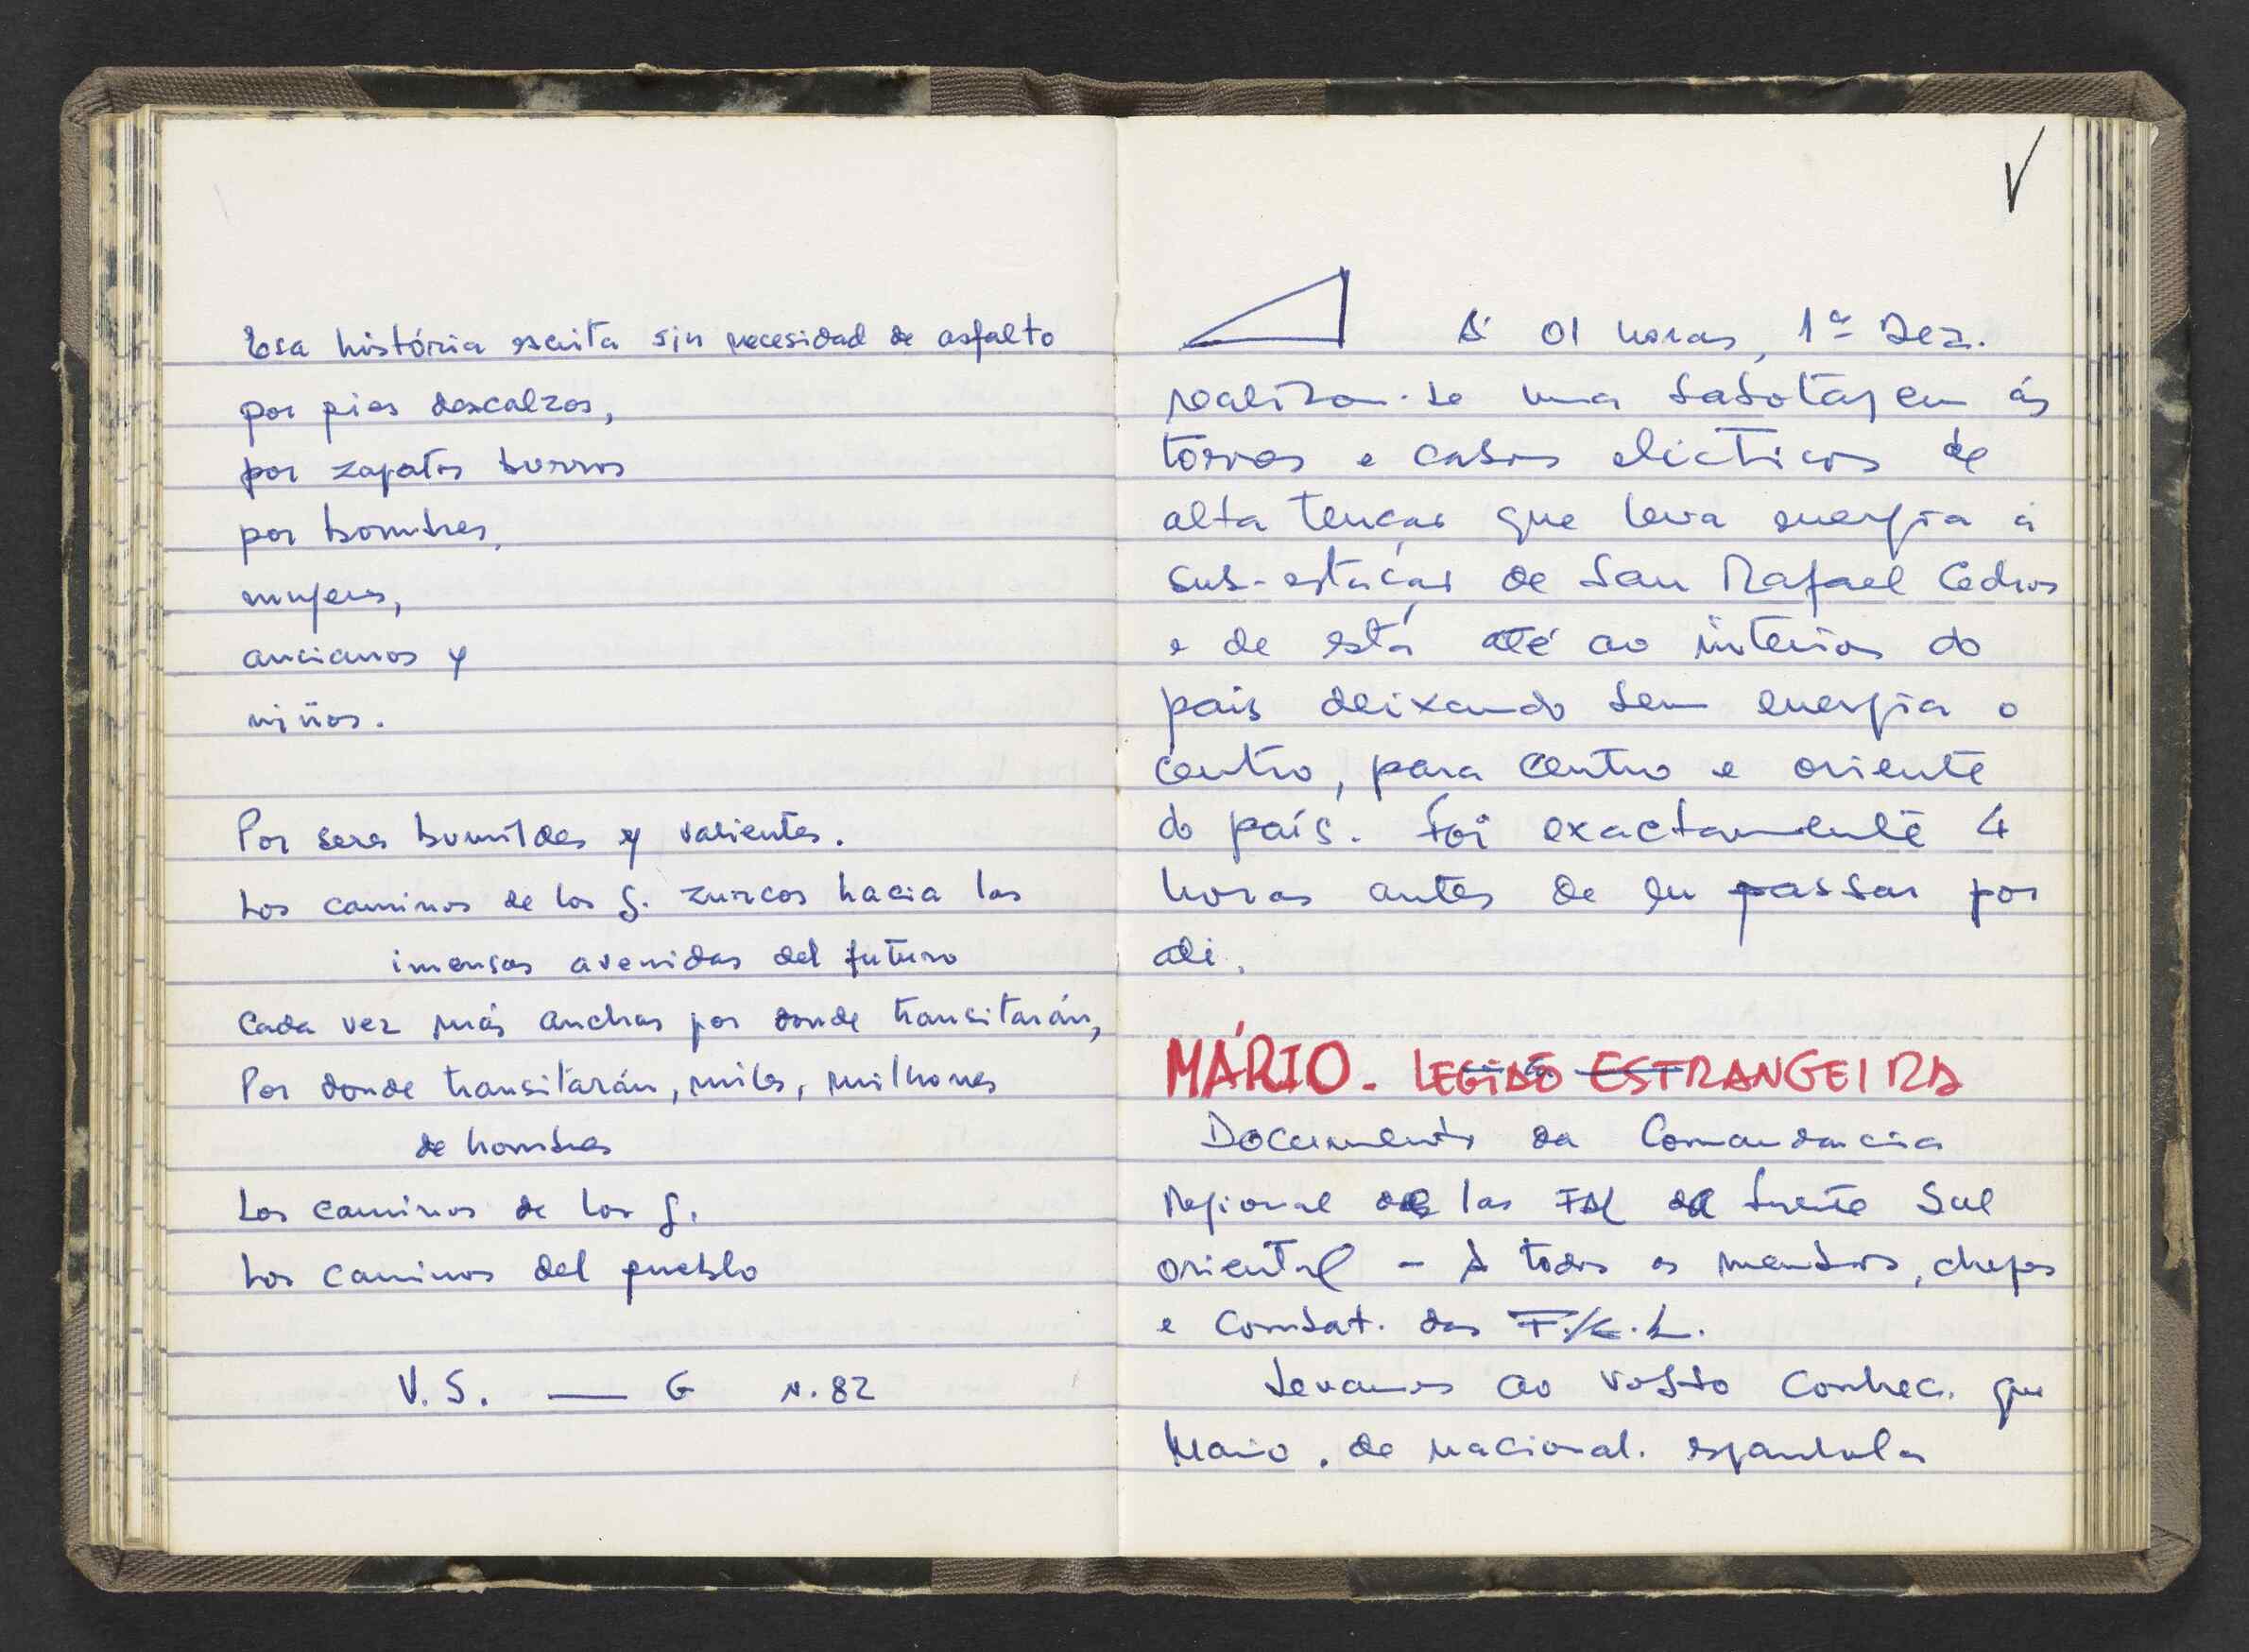 Esa história escrita sin necesidad de asfalto
por pies descalzos,
por zapatos burros
por hombres,
mujeres,
ancianos y
niños.
Por seres humildes y valientes.
Los caminos de los g. zurcos hacia las
imensas avenidas del futuro
Cada vez más anchas por donde transitarán,
Por donde transitarán, miles, milhones
de hombres
Los caminos de los g.
Los caminos del pueblo
V.S. — G N. 82
√
À 01 horas, 1º Dez.
realizou-se uma sabotagem ás
torres e cabos eléctricos de
alta tenção que leva energia á
sub-estação de San Rafael Cedros
e de esta até ao interior do
país deixando sem energia o
centro, para centro e oriente
do país. Foi exactamente 4
horas antes de eu passar por
ali.
MÁRIO. LEGIÃO ESTRANGEIRA
Documento da Comandancia
Regional de las del frente Sul
oriental - A todos os membros, chefes
e Combat. das
Levamos ao vosso conhec. que
Mario, de nacional. espanhola